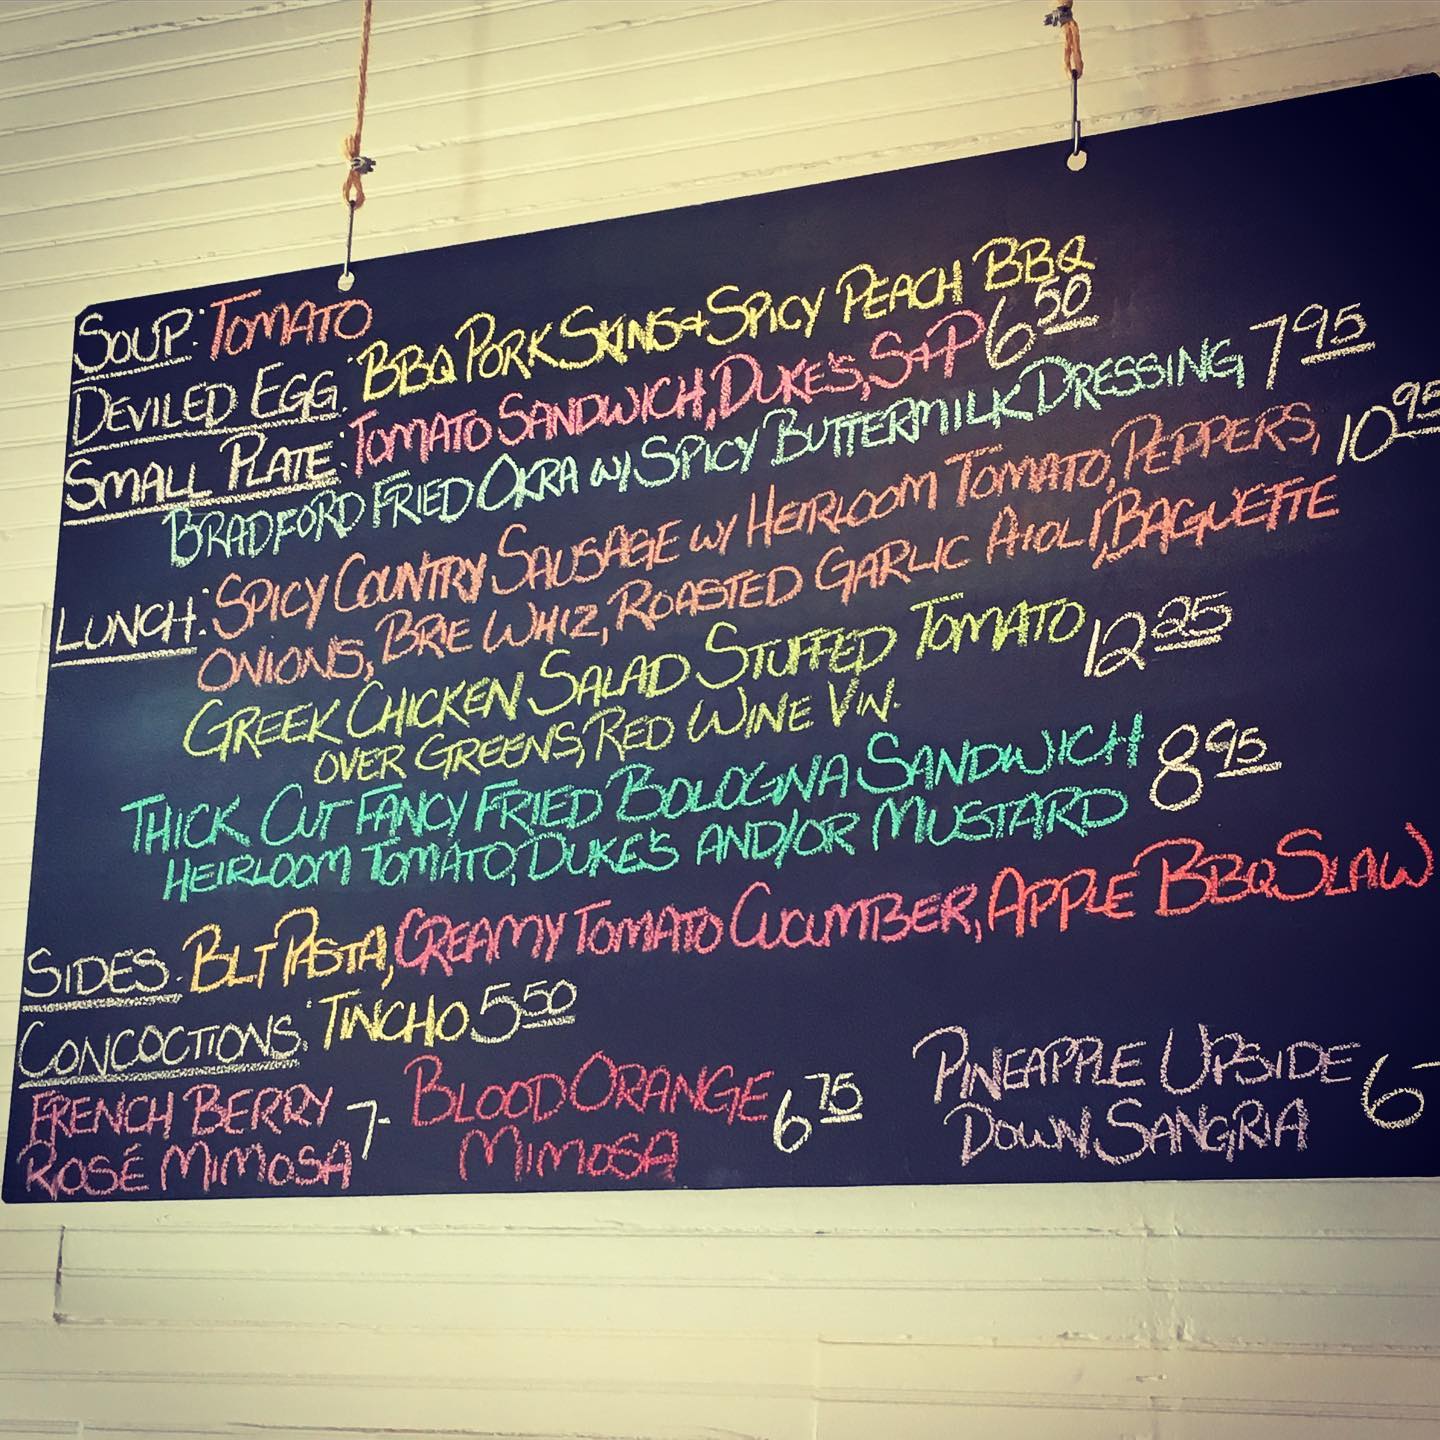 SOUP: TOMATO
DEVILED EGG: BBQ PORK SKINS + SPICY PEACH BBQ
SMALL PLATE: TOMATO SANDWICH, DUKE'S, S&P 6 50
BRADFORD FRIED OKRA W/ SPICY BUTTERMILK DRESSING 7 95
LUNCH: SPICY COUNTRY SAUSAGE W/ HEIRLOOM TOMATO, PEPPERS, 10 95
ONIONS, BRIE WHIZ, ROASTED GARLIC AIOLI, BAGUETTE
GREEK CHICKEN SALAD STUFFED TOMATO 12 25
OVER GREENS, RED WINE VIN.
THICK CUT FANCY FRIED BOLOGNA SANDWICH 8 95
HEIRLOOM TOMATO, DUKE'S AND/OR MUSTARD
SIDES: BLT PASTA, CREAMY TOMATO CUCUMBER, APPLE BBQ SLAW
CONCOCTIONS: TINCHO 5 50
FRENCH BERRY ROSÉ MIMOSA 7-
BLOOD ORANGE MIMOSA 6 75
PINEAPPLE UPSIDE DOWN SANGRIA 6-